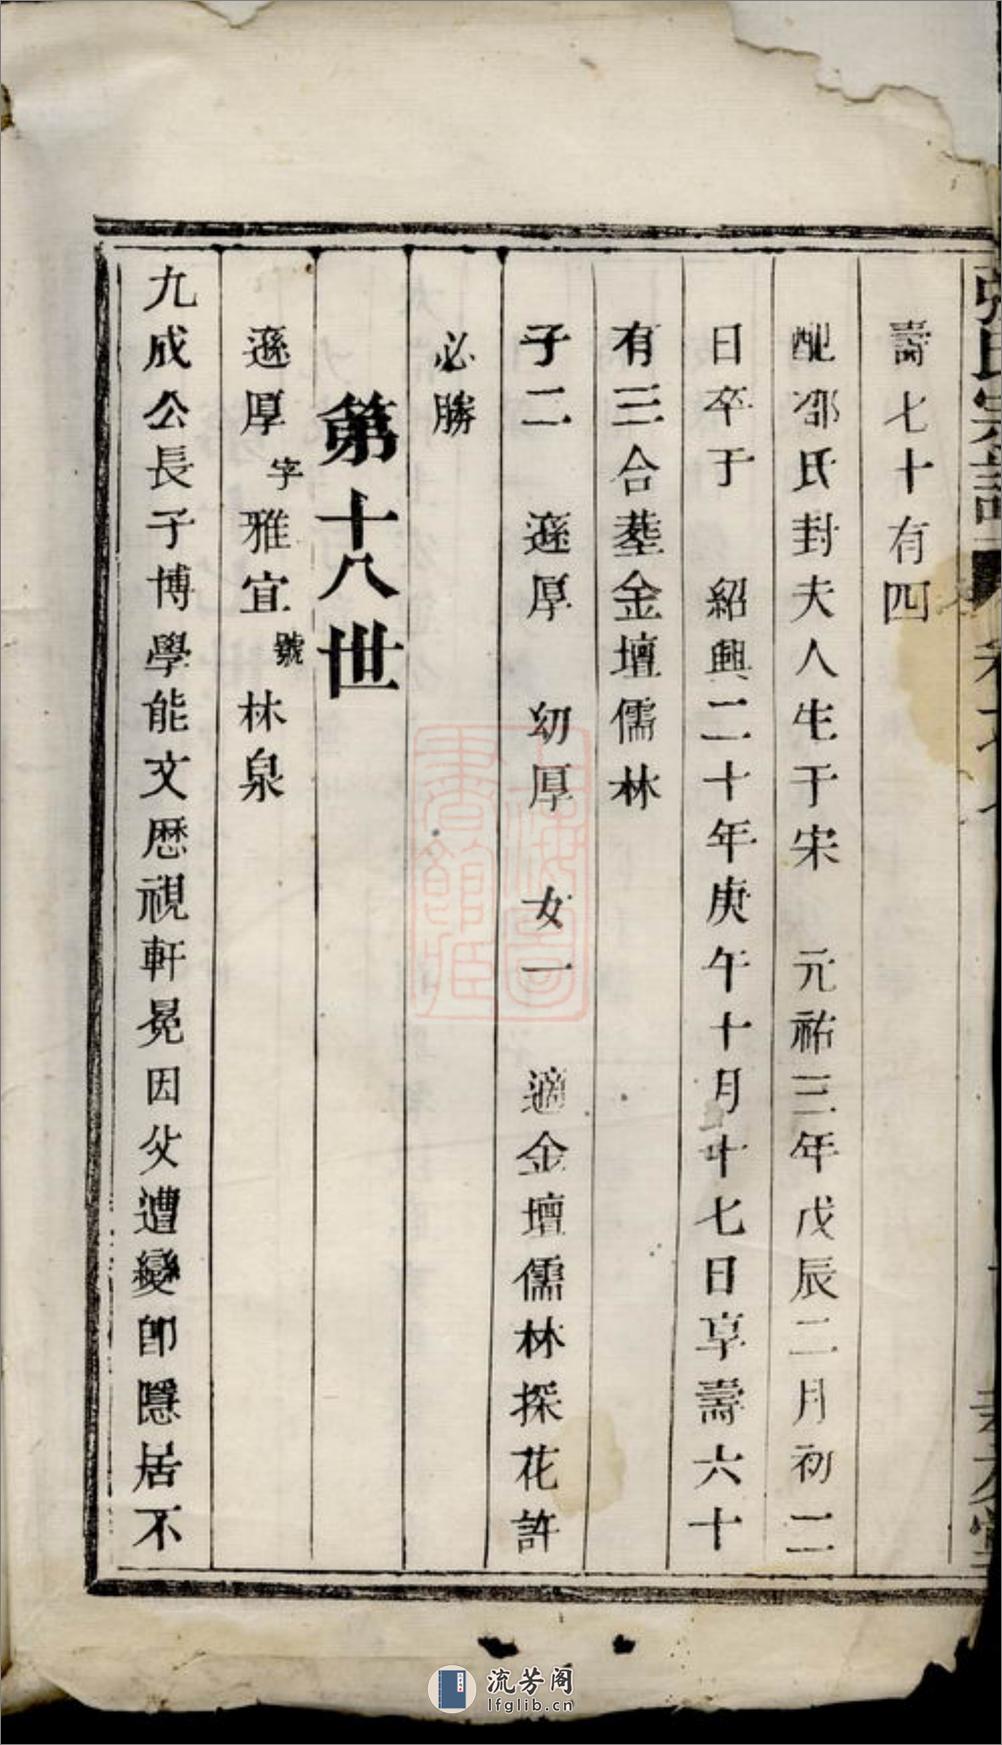 張氏宗譜
壽七十有四
配鄒氏封夫人生于宋　元祐三年戊辰二月初二
日卒于　紹興二十年庚午十月十七日享壽六十
有三合塟金壇儒林
子二　遜厚　幼厚　女一　適金壇儒林探花許
必勝
第十八世
遜厚字雅宜號林泉
九成公長子博學能文歷視軒冕因父遭變即隱居不
上海圖書館藏
流芳阁
lfglib.cn